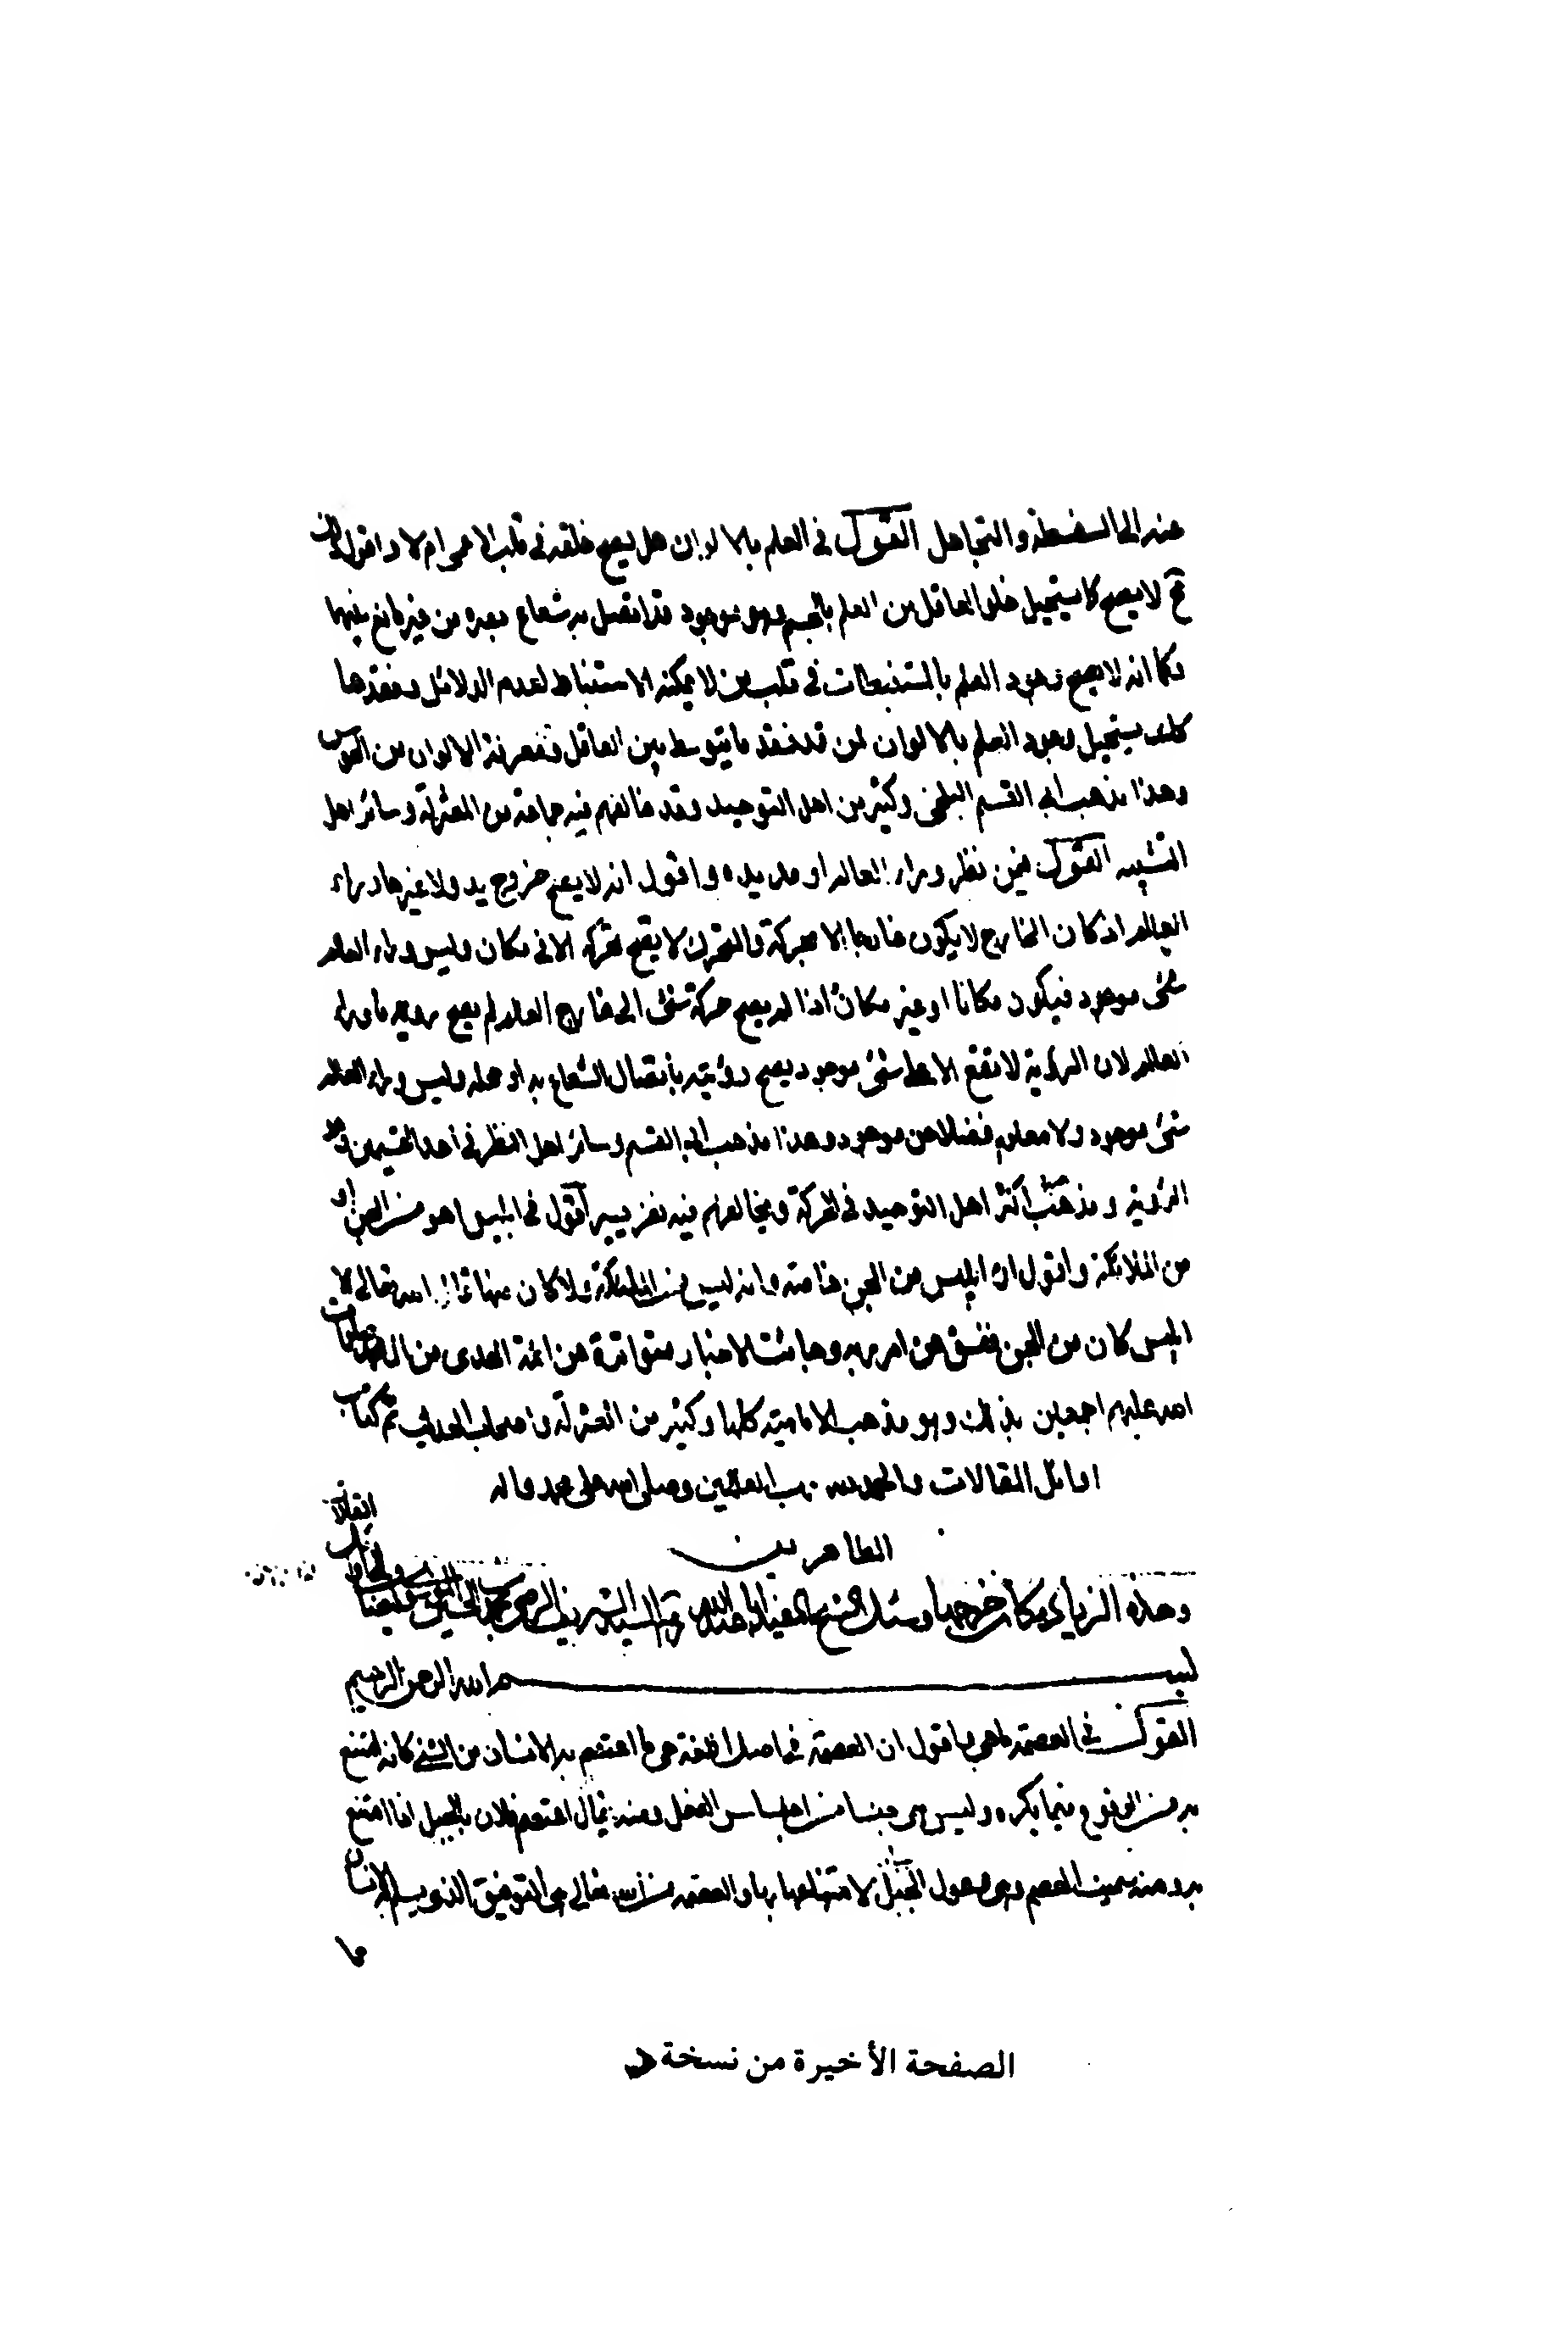 عنه الى السفسطة والتجاهل القول في العلم بالالوان هل يصح خلقه في قلب الاعمى ام لا واقول ان
لا يصح كما يستحيل خلو العاقل من العلم بالجسم وهو موجود قد اتصل به شعاع بصره من غير مانع بينهما
وكما انه لا يصح وجود العلم بالمستنبطات في قلب من لا يمكنه الاستنباط لعدم الدلائل وفقدها
كذلك يستحيل وجود العلم بالالوان لمن قد فقد ما يتوسط بين العاقل ومعرفة الالوان من الحواس
وهذا مذهب ابي القسم البلخي وكثير من اهل التوحيد وقد خالفهم فيه جماعة من المعتزلة وسائر اهل
التشبيه القول فيمن نظر وراء العالم او مد يده واقول انه لا يصح خروج يد ولا غيرها وراء
العالم اذ كان الخارج لا يكون خارجا الا بحركة والمتحرك لا يصح تحركه الا في مكان وليس وراء العالم
شئ موجود فيكون مكانا او غير مكان اذا لم يصح حركة شئ الى خارج العالم لم يصح رويه ما وراء
العالم لان الرؤية لا تقع الا على شئ موجود يصح رؤيته بأتصال الشعاع به او محله وليس وراء العالم
شئ موجود ولا معلوم فضلا عن موجود وهذا مذهب ابي القسم وسائر اهل النظر في احد القسمين وهو
الرؤية ومذهب اكثر اهل التوحيد في الحركة ويخالفهم فيه نفر يسير القول في ابليس اهو من الجن او
من الملائكة واقول ان ابليس من الجن خاصة وانه ليس من الملائكة ولا كان منها قال الله تعالى الا
ابليس كان من الجن ففسق عن امر ربه وجائت الاخبار متواترة عن ائمة الهدى من ال محمد صلوات
الله عليهم اجمعين بذلك وهو مذهب الامامية كلها وكثير من المعتزلة واصحاب الحديث تم كتاب
اوائل المقالات والحمد لله رب العالمين وصلى الله على محمد واله
الطاهرين
المقالات
وهذه الزيادة كان خرجها وسئل الشيخ المفيد ابا عبد الله السيد الشريف الرضي محمد بن الحسين
بسم الله الرحمن الرحيم
القول في العصمة ما هي اقول ان العصمة في اصل اللغة هي ما اعتصم به الانسان من الشئ كانه امتنع
به من الوقوع فيما يكره وليس هي جنسا من اجناس الفعل ومنه يقال اعتصم فلان بالجبل اذا امتنع
به ومنه سميت العصم وهي وعول الجبل لامتناعها بها والعصمة من الله تعالى هي التوفيق الذي يسلم به الانسان
ما
الصفحة الأخيرة من نسخة